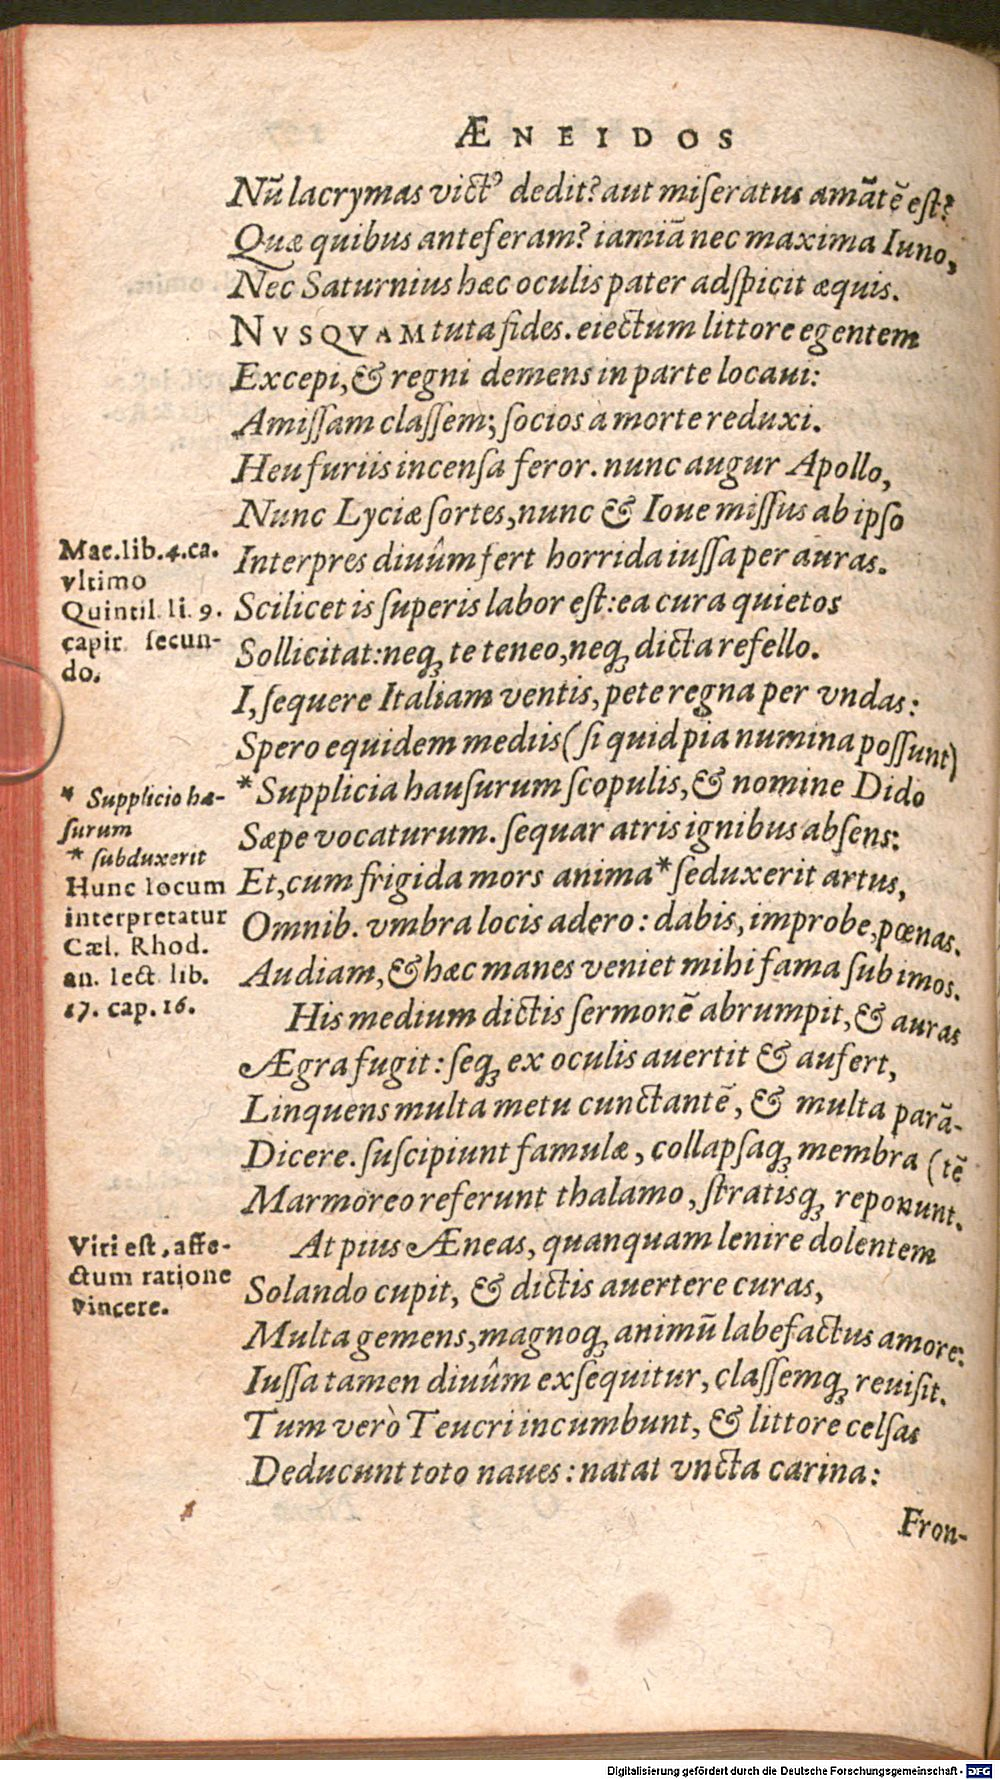 ÆNEIDOS
Nũ lacrymas vict⁹ dedit? aut miseratus amãtẽ est?
Quæ quibus anteferam? iamiã nec maxima Iuno,
Nec Saturnius hæc oculis pater adspicit æquis.
NVSQVAM tuta fides. eiectum littore egentem
Excepi, & regni demens in parte locaui:
Amissam classem; socios à morte reduxi.
Heu furiis incensa feror. nunc augur Apollo,
Nunc Lyciæ sortes, nunc & Ioue missus ab ipso
Interpres diuûm fert horrida iussa per auras.
Scilicet is superis labor est: ea cura quietos
Sollicitat: neq; te teneo, neq; dicta refello.
I, sequere Italiam ventis, pete regna per vndas:
Spero equidem mediis (si quid pia numina possunt)
*Supplicia hausurum scopulis, & nomine Dido
Sæpe vocaturum. sequar atris ignibus absens:
Et, cum frigida mors anima *seduxerit artus,
Omnib. vmbra locis adero: dabis, improbe, pœnas.
Audiam, & hæc manes veniet mihi fama sub imos.
His medium dictis sermonẽ abrumpit, & auras
Ægra fugit: seq; ex oculis auertit & aufert,
Linquens multa metu cunctantẽ, & multa parã-
Dicere. suscipiunt famulæ, collapsaq; membra (tẽ
Marmoreo referunt thalamo, stratisq; reponunt.
At pius Æneas, quanquam lenire dolentem
Solando cupit, & dictis auertere curas,
Multa gemens, magnoq; animũ labefactus amore:
Iussa tamen diuûm exsequitur, classemq; reuisit.
Tum verò Teucri incumbunt, & littore celsas
Deducunt toto naues: natat vncta carina:
Fron-
Mac. lib. 4. ca.
vltimo
Quintil. li. 9.
capit secun-
do.
* Supplicio hæ-
surum
* subduxerit
Hunc locum
interpretatur
Cæl. Rhod.
an. lect. lib.
17. cap. 16.
Viri est, affe-
ctum ratione
vincere.
Digitalisierung gefördert durch die Deutsche Forschungsgemeinschaft - DFG